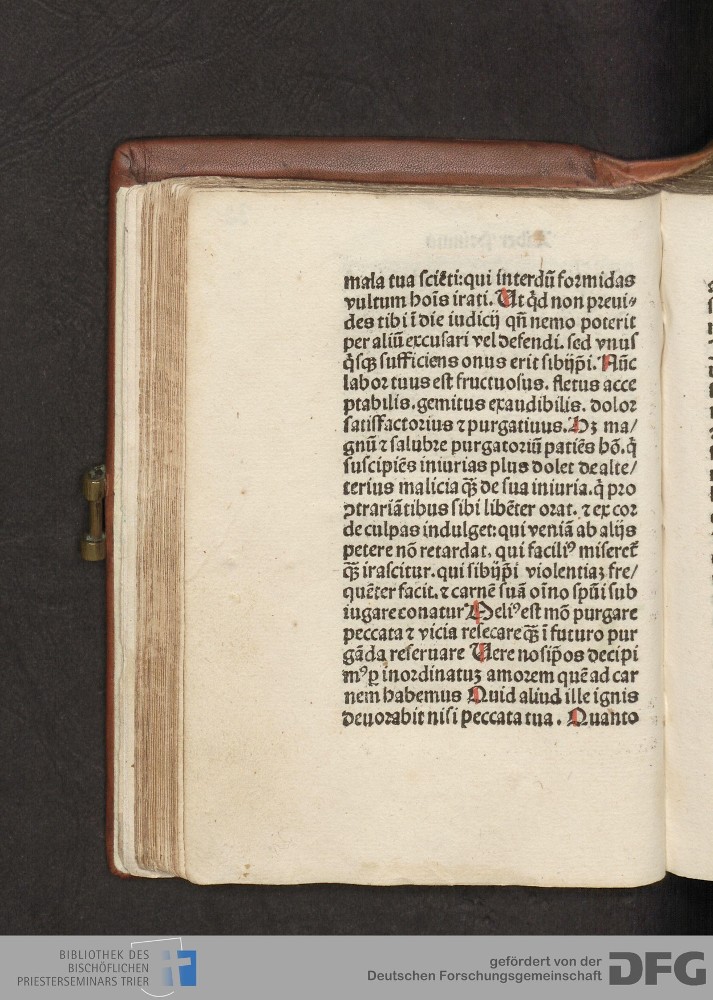 mala tua sciẽti: qui interdũ formidas
vultum hoĩs irati. Ut q̇d non preui⸗
des tibi ĩ die iudicij qñ nemo poterit
per aliũ excusari vel defendi. sed vnus
q̇sqꝫ sufficiens onus erit sibijp̃i. Nũc
labor tuus est fructuosus. fletus acce
ptabilis. gemitus exaudibilis. dolor
satisfactorius ⁊ purgatiuus. Hꝫ ma/
gnũ ⁊ salubre purgatoriũ patiẽs hõ. q̇
suscipiẽs iniurias plus dolet de alte/
terius malicia qꝫ̃ de sua iniuria. q̇ pro
ꝯtrariãtibus sibi libẽter orat. ⁊ ex cor
de culpas indulget: qui veniã ab alijs
petere nõ retardat. qui faciliꝰ miseret̃
qꝫ̃ irascitur. qui sibijp̃i violentiaꝫ fre/
quẽter facit. ⁊ carnẽ suã oĩno spũi sub
iugare conatur Meliꝰ est mõ purgare
peccata ⁊ vicia resecare qꝫ̃ ĩ futuro pur
gãda reseruare Uere nosip̃os decipi
mꝰ ꝑ inordinatuꝫ amorem quẽ ad car
nem habemus Quid aliud ille ignis
deuorabit nisi peccata tua. Quanto
BIBLIOTHEK DES
BISCHÖFLICHEN
PRIESTERSEMINARS TRIER
gefördert von der
Deutschen Forschungsgemeinschaft
DFG